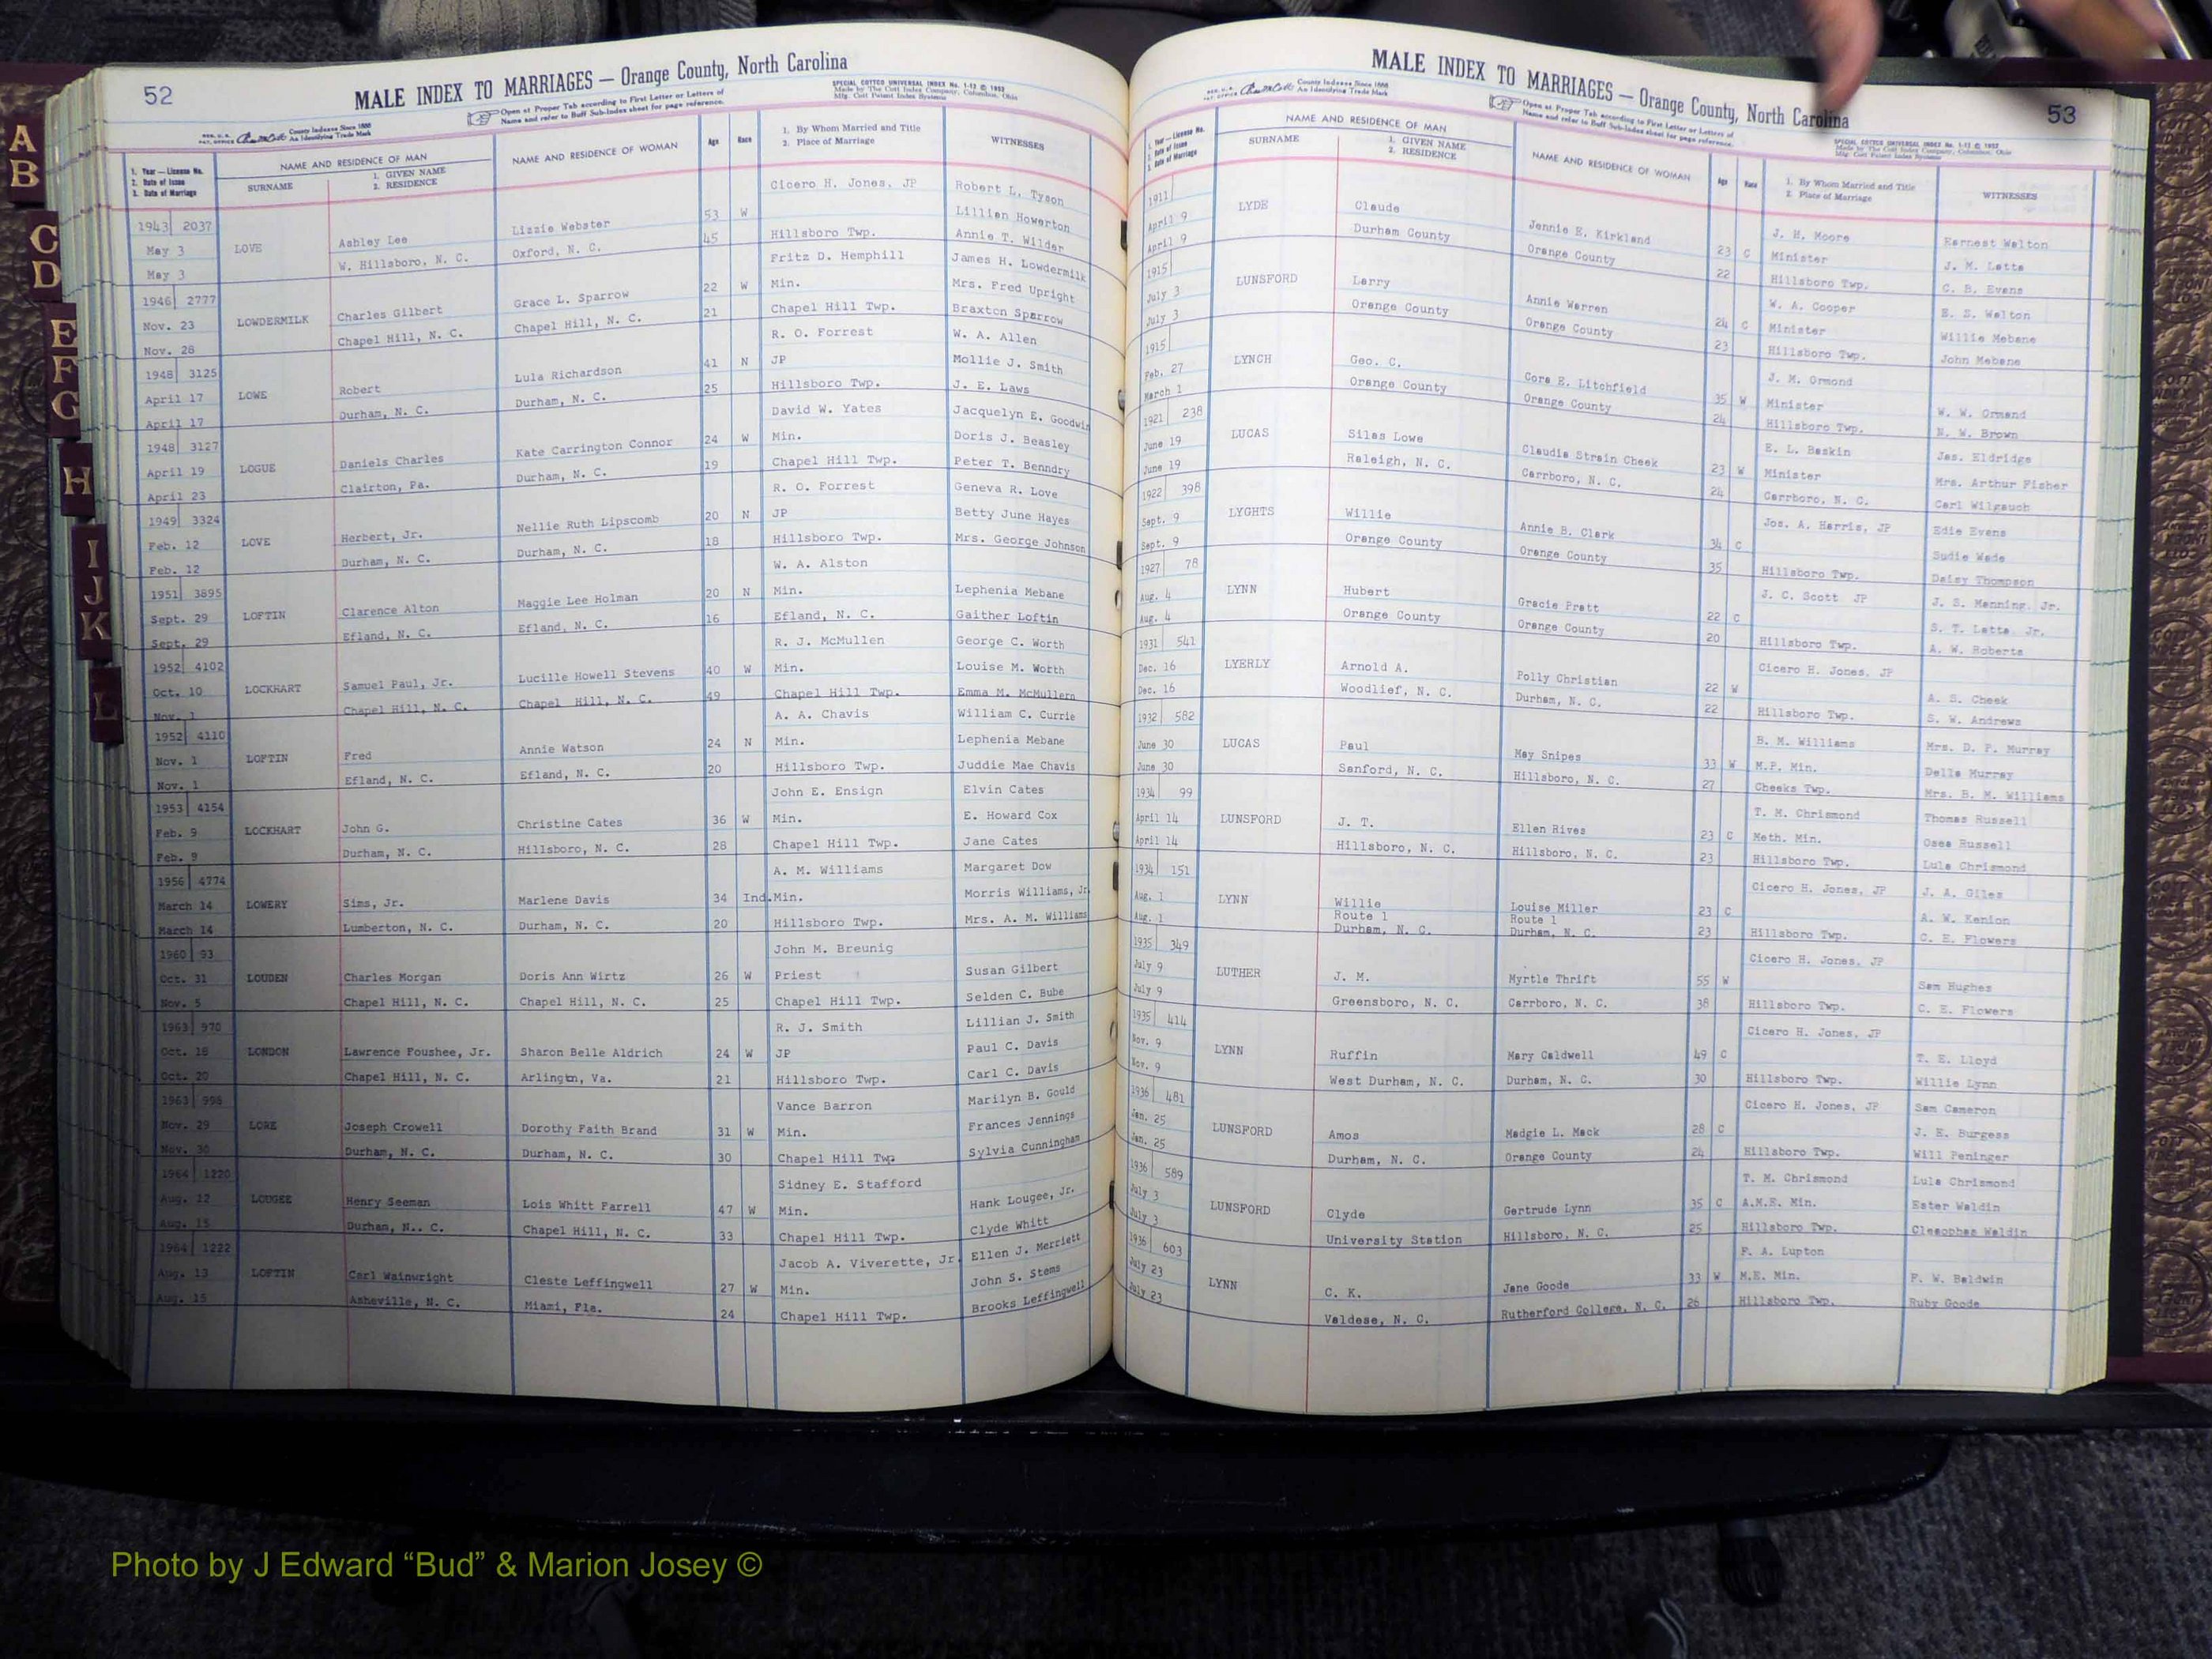 A
B
C
D
E
F
G
H
I
J
K
L
52
MALE INDEX TO MARRIAGES — Orange County, North Carolina
County Indexes Since 1888
An Identifying Trade Mark
Open at Proper Tab according to First Letter or Letters of
Name and refer to Buff Sub-Index sheet for page reference.
SPECIAL COTTCO UNIVERSAL INDEX No. 1-12 © 1952
Made by The Cott Index Company, Columbus, Ohio
Mfg. Cott Patent Index Systems
1. Year — License No.
2. Date of Issue
3. Date of Marriage
NAME AND RESIDENCE OF MAN
SURNAME
1. GIVEN NAME
2. RESIDENCE
NAME AND RESIDENCE OF WOMAN
Age
Race
1. By Whom Married and Title
2. Place of Marriage
WITNESSES
Cicero H. Jones, JP Robert L. Tyson
1943 2037 Lizzie Webster 53 W Lillian Howerton
May 3 LOVE Ashley Lee Oxford, N. C. 45 Hillsboro Twp. Annie T. Wilder
May 3 W. Hillsboro, N. C. Fritz D. Hemphill James H. Lowdermilk
1946 2777 Charles Gilbert Grace L. Sparrow 22 W Min. Mrs. Fred Upright
Nov. 23 LOWDERMILK Chapel Hill, N. C. Chapel Hill, N. C. 21 Chapel Hill Twp. Braxton Sparrow
Nov. 28 R. O. Forrest W. A. Allen
1948 3125 Robert Lula Richardson 41 N JP Mollie J. Smith
April 17 LOWE Durham, N. C. Durham, N. C. 25 Hillsboro Twp. J. E. Laws
April 17 David W. Yates Jacquelyn E. Goodwin
1948 3127 Daniels Charles Kate Carrington Connor 24 W Min. Doris J. Beasley
April 19 LOGUE Clairton, Pa. Durham, N. C. 19 Chapel Hill Twp. Peter T. Benndry
April 23 R. O. Forrest Geneva R. Love
1949 3324 Herbert, Jr. Nellie Ruth Lipscomb 20 N JP Betty June Hayes
Feb. 12 LOVE Durham, N. C. Durham, N. C. 18 Hillsboro Twp. Mrs. George Johnson
Feb. 12 W. A. Alston
1951 3895 Clarence Alton Maggie Lee Holman 20 N Min. Lephenia Mebane
Sept. 29 LOFTIN Efland, N. C. Efland, N. C. 16 Efland, N. C. Gaither Loftin
Sept. 29 R. J. McMullen George C. Worth
1952 4102 Samuel Paul, Jr. Lucille Howell Stevens 40 W Min. Louise M. Worth
Oct. 10 LOCKHART Chapel Hill, N. C. Chapel Hill, N. C. 49 Chapel Hill Twp. Emma M. McMullern
Nov. 1 A. A. Chavis William C. Currie
1952 4110 Fred Annie Watson 24 N Min. Lephenia Mebane
Nov. 1 LOFTIN Efland, N. C. Efland, N. C. 20 Hillsboro Twp. Juddie Mae Chavis
Nov. 1 John E. Ensign Elvin Cates
1953 4154 John G. Christine Cates 36 W Min. E. Howard Cox
Feb. 9 LOCKHART Durham, N. C. Hillsboro, N. C. 28 Chapel Hill Twp. Jane Cates
Feb. 9 A. M. Williams Margaret Dow
1956 4774 Sims, Jr. Marlene Davis 34 Ind. Min. Morris Williams, Jr.
March 14 LOWERY Lumberton, N. C. Durham, N. C. 20 Hillsboro Twp. Mrs. A. M. Williams
March 14 John M. Breunig
1960 93
Oct. 31 LOUDEN Charles Morgan Doris Ann Wirtz 26 W Priest Susan Gilbert
Nov. 5 Chapel Hill, N. C. Chapel Hill, N. C. 25 Chapel Hill Twp. Selden C. Bube
1963 970 R. J. Smith Lillian J. Smith
Oct. 18 LONDON Lawrence Foushee, Jr. Sharon Belle Aldrich 24 W JP Paul C. Davis
Oct. 20 Chapel Hill, N. C. Arlingtn, Va. 21 Hillsboro Twp. Carl C. Davis
1963 998 Vance Barron Marilyn B. Gould
Nov. 29 LORE Joseph Crowell Dorothy Faith Brand 31 W Min. Frances Jennings
Nov. 30 Durham, N. C. Durham, N. C. 30 Chapel Hill Twp Sylvia Cunningham
1964 1220 Sidney E. Stafford
Aug. 12 LOUGEE Henry Seeman Lois Whitt Farrell 47 W Min. Hank Lougee, Jr.
Aug. 15 Durham, N.. C. Chapel Hill, N. C. 33 Chapel Hill Twp. Clyde Whitt
1964 1222 Jacob A. Viverette, Jr. Ellen J. Merriett
Aug. 13 LOFTIN Carl Wainwright Cleste Leffingwell 27 W Min. John S. Stems
Aug. 15 Asheville, N. C. Miami, Fla. 24 Chapel Hill Twp. Brooks Leffingwell
53
MALE INDEX TO MARRIAGES — Orange County, North Carolina
County Indexes Since 1888
An Identifying Trade Mark
Open at Proper Tab according to First Letter or Letters of
Name and refer to Buff Sub-Index sheet for page reference.
SPECIAL COTTCO UNIVERSAL INDEX No. 1-12 © 1952
Made by The Cott Index Company, Columbus, Ohio
Mfg. Cott Patent Index Systems
1. Year — License No.
2. Date of Issue
3. Date of Marriage
NAME AND RESIDENCE OF MAN
SURNAME
1. GIVEN NAME
2. RESIDENCE
NAME AND RESIDENCE OF WOMAN
Age
Race
1. By Whom Married and Title
2. Place of Marriage
WITNESSES
1911 Claude Jennie E. Kirkland J. H. Moore Earnest Walton
April 9 LYDE Durham County Orange County 23 C Minister J. M. Latta
April 9 22 Hillsboro Twp. C. B. Evans
1915 Larry Annie Warren W. A. Cooper E. S. Walton
July 3 LUNSFORD Orange County Orange County 24 C Minister Willie Mebane
July 3 23 Hillsboro Twp. John Mebane
1915 Geo. C. Cora E. Litchfield J. M. Ormond
Feb. 27 LYNCH Orange County Orange County 35 W Minister W. W. Ormand
March 1 24 Hillsboro Twp. N. W. Brown
1921 238 Silas Lowe Claudia Strain Cheek E. L. Baskin Jas. Eldridge
June 19 LUCAS Raleigh, N. C. Carrboro, N. C. 23 W Minister Mrs. Arthur Fisher
June 19 24 Carrboro, N. C. Carl Wilgauch
1922 398 Willie Annie B. Clark Jos. A. Harris, JP Edie Evans
Sept. 9 LYGHTS Orange County Orange County 34 C Sudie Wade
Sept. 9 35 Hillsboro Twp. Daisy Thompson
1927 78 Hubert Gracie Pratt J. C. Scott JP J. S. Manning, Jr.
Aug. 4 LYNN Orange County Orange County 22 C S. T. Latta, Jr.
Aug. 4 20 Hillsboro Twp. A. W. Roberts
1931 541 Arnold A. Polly Christian Cicero H. Jones, JP
Dec. 16 LYERLY Woodlief, N. C. Durham, N. C. 22 W A. S. Cheek
Dec. 16 22 Hillsboro Twp. S. W. Andrews
1932 582 Paul May Snipes B. M. Williams Mrs. D. P. Murray
June 30 LUCAS Sanford, N. C. Hillsboro, N. C. 33 W M.P. Min. Della Murray
June 30 27 Cheeks Twp. Mrs. B. M. Williams
1934 99 J. T. Ellen Rives T. M. Chrismond Thomas Russell
April 14 LUNSFORD Hillsboro, N. C. Hillsboro, N. C. 23 C Meth. Min. Osea Russell
April 14 23 Hillsboro Twp. Lula Chrismond
1934 151 Willie Louise Miller Cicero H. Jones, JP J. A. Giles
Aug. 1 LYNN Route 1 Route 1 23 C A. W. Kenion
Aug. 1 Durham, N. C. Durham, N. C. 23 Hillsboro Twp. C. E. Flowers
1935 349 Cicero H. Jones, JP
July 9 LUTHER J. M. Myrtle Thrift 55 W Sam Hughes
July 9 Greensboro, N. C. Carrboro, N. C. 38 Hillsboro Twp. C. E. Flowers
1935 414 Cicero H. Jones, JP
Nov. 9 LYNN Ruffin Mary Caldwell 49 C T. E. Lloyd
Nov. 9 West Durham, N. C. Durham, N. C. 30 Hillsboro Twp. Willie Lynn
1936 481 Cicero H. Jones, JP Sam Cameron
Jan. 25 LUNSFORD Amos Madgie L. Mack 28 C J. E. Burgess
Jan. 25 Durham, N. C. Orange County 24 Hillsboro Twp. Will Peninger
1936 589 T. M. Chrismond Lula Chrismond
July 3 LUNSFORD Clyde Gertrude Lynn 35 C A.M.E. Min. Ester Waldin
July 3 University Station Hillsboro, N. C. 25 Hillsboro Twp. Cleaophas Waldin
1936 603 F. A. Lupton
July 23 LYNN C. K. Jane Goode 33 W M.E. Min. F. W. Baldwin
July 23 Valdese, N. C. Rutherford College, N. C. 26 Hillsboro Twp. Ruby Goode
Photo by J Edward “Bud” & Marion Josey ©